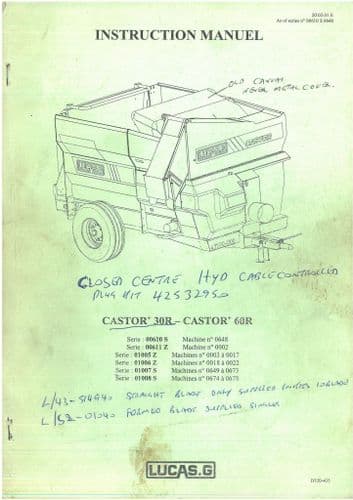 INSTRUCTION MANUEL
OLD CANVAS
NEVER METAL COVER.
LUCAS.G
CASTOR
CLOSED CENTRE HYD CABLE CONTROLLED
PLUG KIT 42532950
CASTOR' 30R - CASTOR' 60R
Serie : 00610 S Machine n° 0648
Serie : 00611 Z Machine n° 0002
Serie : 01005 Z Machines n° 0003 à 0017
Serie : 01006 Z Machines n° 0018 à 0022
Serie : 01007 S Machines n° 0649 à 0673
Serie : 01008 S Machines n° 0674 à 0675
STRAIGHT BLADE ONLY SUPPLIED
L/52-01040 FORMED BLADE SUPPLIED SINGLE
LUCAS.G